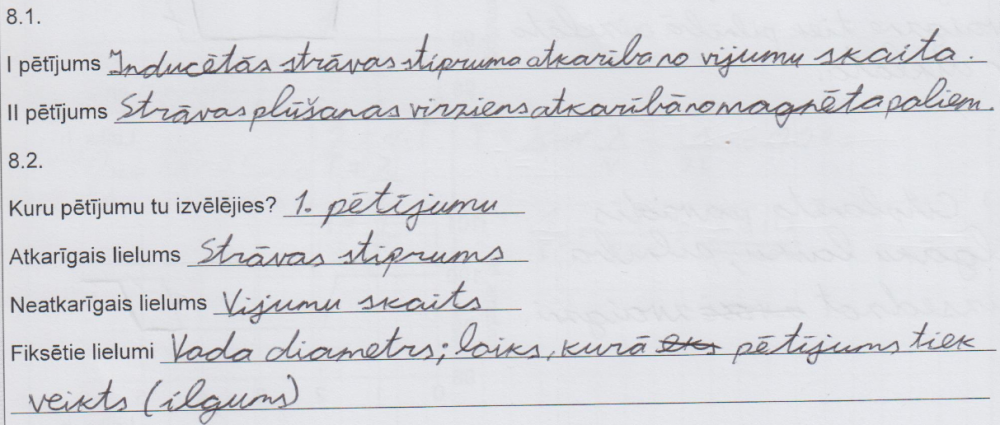 8.1.
I pētījums Inducētās strāvas stipruma atkarība no vijumu skaita.
II pētījums Strāvas plūšanas virziens atkarībā no magnēta poliem.
8.2.
Kuru pētījumu tu izvēlējies? 1. pētījumu
Atkarīgais lielums Strāvas stiprums
Neatkarīgais lielums Vijumu skaits
Fiksētie lielumi Vada diametrs; laiks, kurā pētījums tiek
veikts (ilgums)